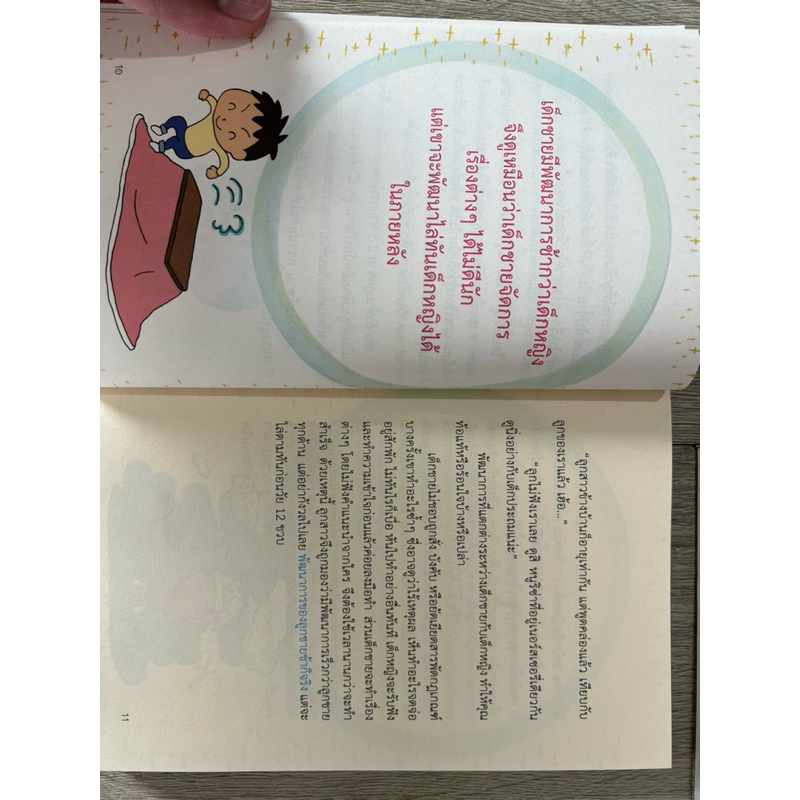 เด็กชายมีพัฒนาการช้ากว่าเด็กหญิง
จึงดูเหมือนว่าเด็กชายจัดการ
เรื่องต่างๆ ได้ไม่ดีนัก
แต่เขาจะพัฒนาไล่ทันเด็กหญิงได้
ในภายหลัง
10
“ลูกสาวข้างบ้านก็อายุเท่ากัน แต่พูดคล่องแล้ว เทียบกับ
ลูกของเราแล้ว เฮ้อ...”
“ลูกไม่ฟังเราเลย ดูสิ หนูริซ่าที่อยู่เนอร์สเซอรี่เดียวกัน
ดูนิ่งอย่างกับเด็กประถมแน่ะ”
พัฒนาการที่แตกต่างระหว่างเด็กชายกับเด็กหญิง ทำให้คุณ
ท้อแท้หรือร้อนใจบ้างหรือเปล่า
เด็กชายไม่ชอบถูกสั่ง บังคับ หรือยัดเยียดสารพัดกฎเกณฑ์
บางครั้งเขาทำอะไรซ้ำๆ ซึ่งอาจดูว่าไร้เหตุผล เห็นทำอะไรจดจ่อ
อยู่สักพัก ไม่ทันไรก็เบื่อ หันไปทำอย่างอื่นทันที เด็กหญิงจะรับฟัง
และทำความเข้าใจก่อนแล้วค่อยลงมือทำ ส่วนเด็กชายจะทำเรื่อง
ต่างๆ โดยไม่ฟังคำแนะนำจากใคร จึงต้องใช้เวลานานกว่าจะทำ
สำเร็จ ด้วยเหตุนี้ ลูกสาวจึงถูกมองว่ามีพัฒนาการเร็วกว่าลูกชาย
ทุกด้าน แต่อย่ากังวลไปเลย พัฒนาการของลูกชายช้าก็จริง แต่จะ
ไล่ตามทันก่อนวัย 12 ขวบ
11